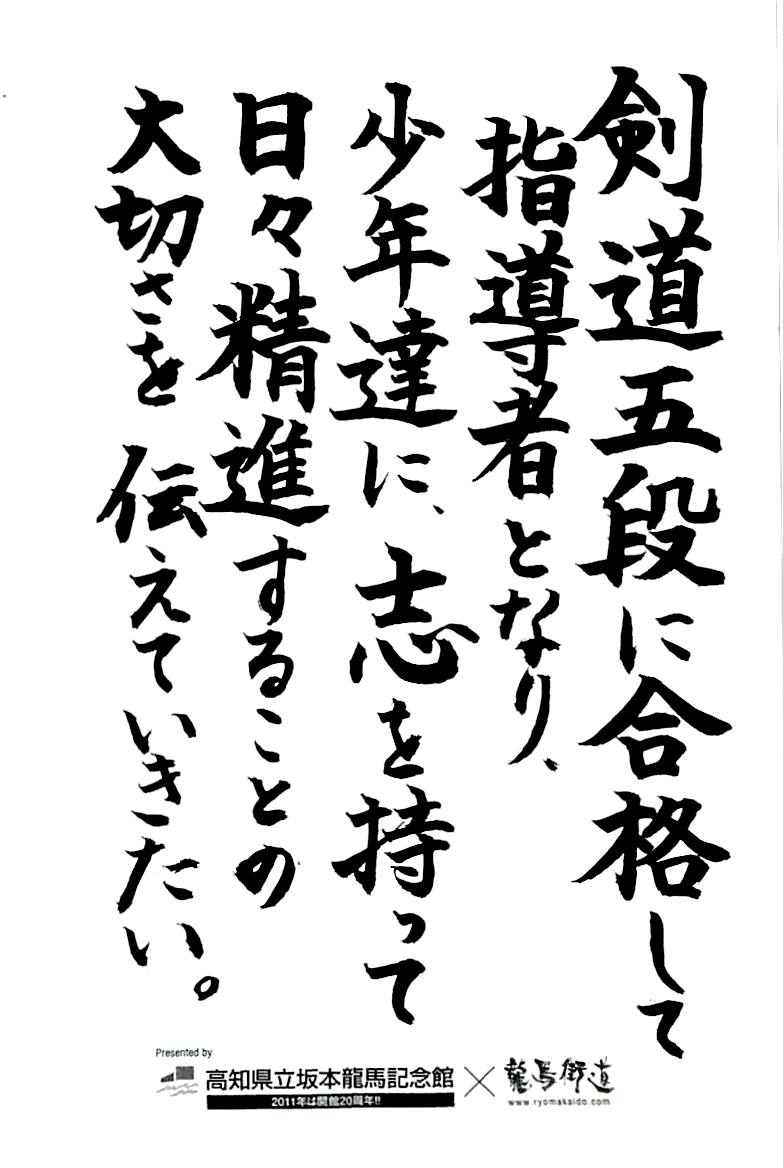 剣道五段に合格して
指導者となり、
少年達に、志を持って
日々精進することの
大切さを伝えていきたい。
Presented by
高知県立坂本龍馬記念館×龍馬街道
2011年は開館20周年!!
www.ryomakaido.com